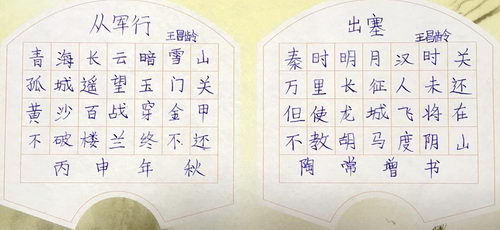 从军行
王昌龄
青海长云暗雪山
孤城遥望玉门关
黄沙百战穿金甲
不破楼兰终不还
丙申年秋
出塞
王昌龄
秦时明月汉时关
万里长征人未还
但使龙城飞将在
不教胡马度阴山
陶常增书